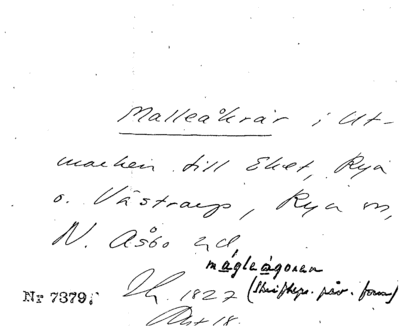 Malleåkrar i Ut-
marken till Eket, Rya
o. Västraup, Rya sn,
N. Åsbo hd,
mågleågoren
Nr 7379. 1827 (Skiftesp. påv. form)
Akt 18.